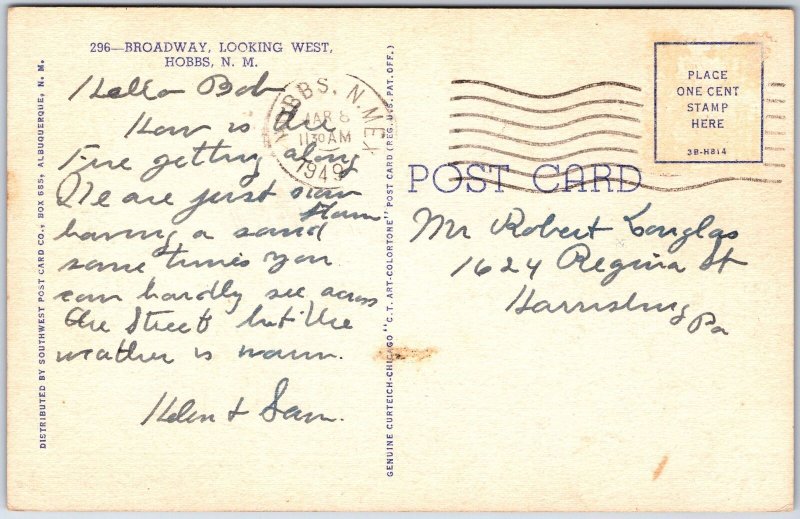 296—BROADWAY, LOOKING WEST,
HOBBS, N. M.
Hello Bob
How is the
Fire getting along
We are just now
having a sand
storm
some times you
can hardly see across
the street but the
weather is warm.
Helen & Sam.
HOBBS, N. MEX.
MAR 8
1130AM
1949
PLACE
ONE CENT
STAMP
HERE
3B-H814
POST CARD
Mr Robert Douglas
1624 Regina St
Harrisburg
Pa
DISTRIBUTED BY SOUTHWEST POST CARD CO., BOX 685, ALBUQUERQUE, N. M.
GENUINE CURTEICH-CHICAGO "C.T. ART-COLORTONE" POST CARD (REG. U.S. PAT. OFF.)